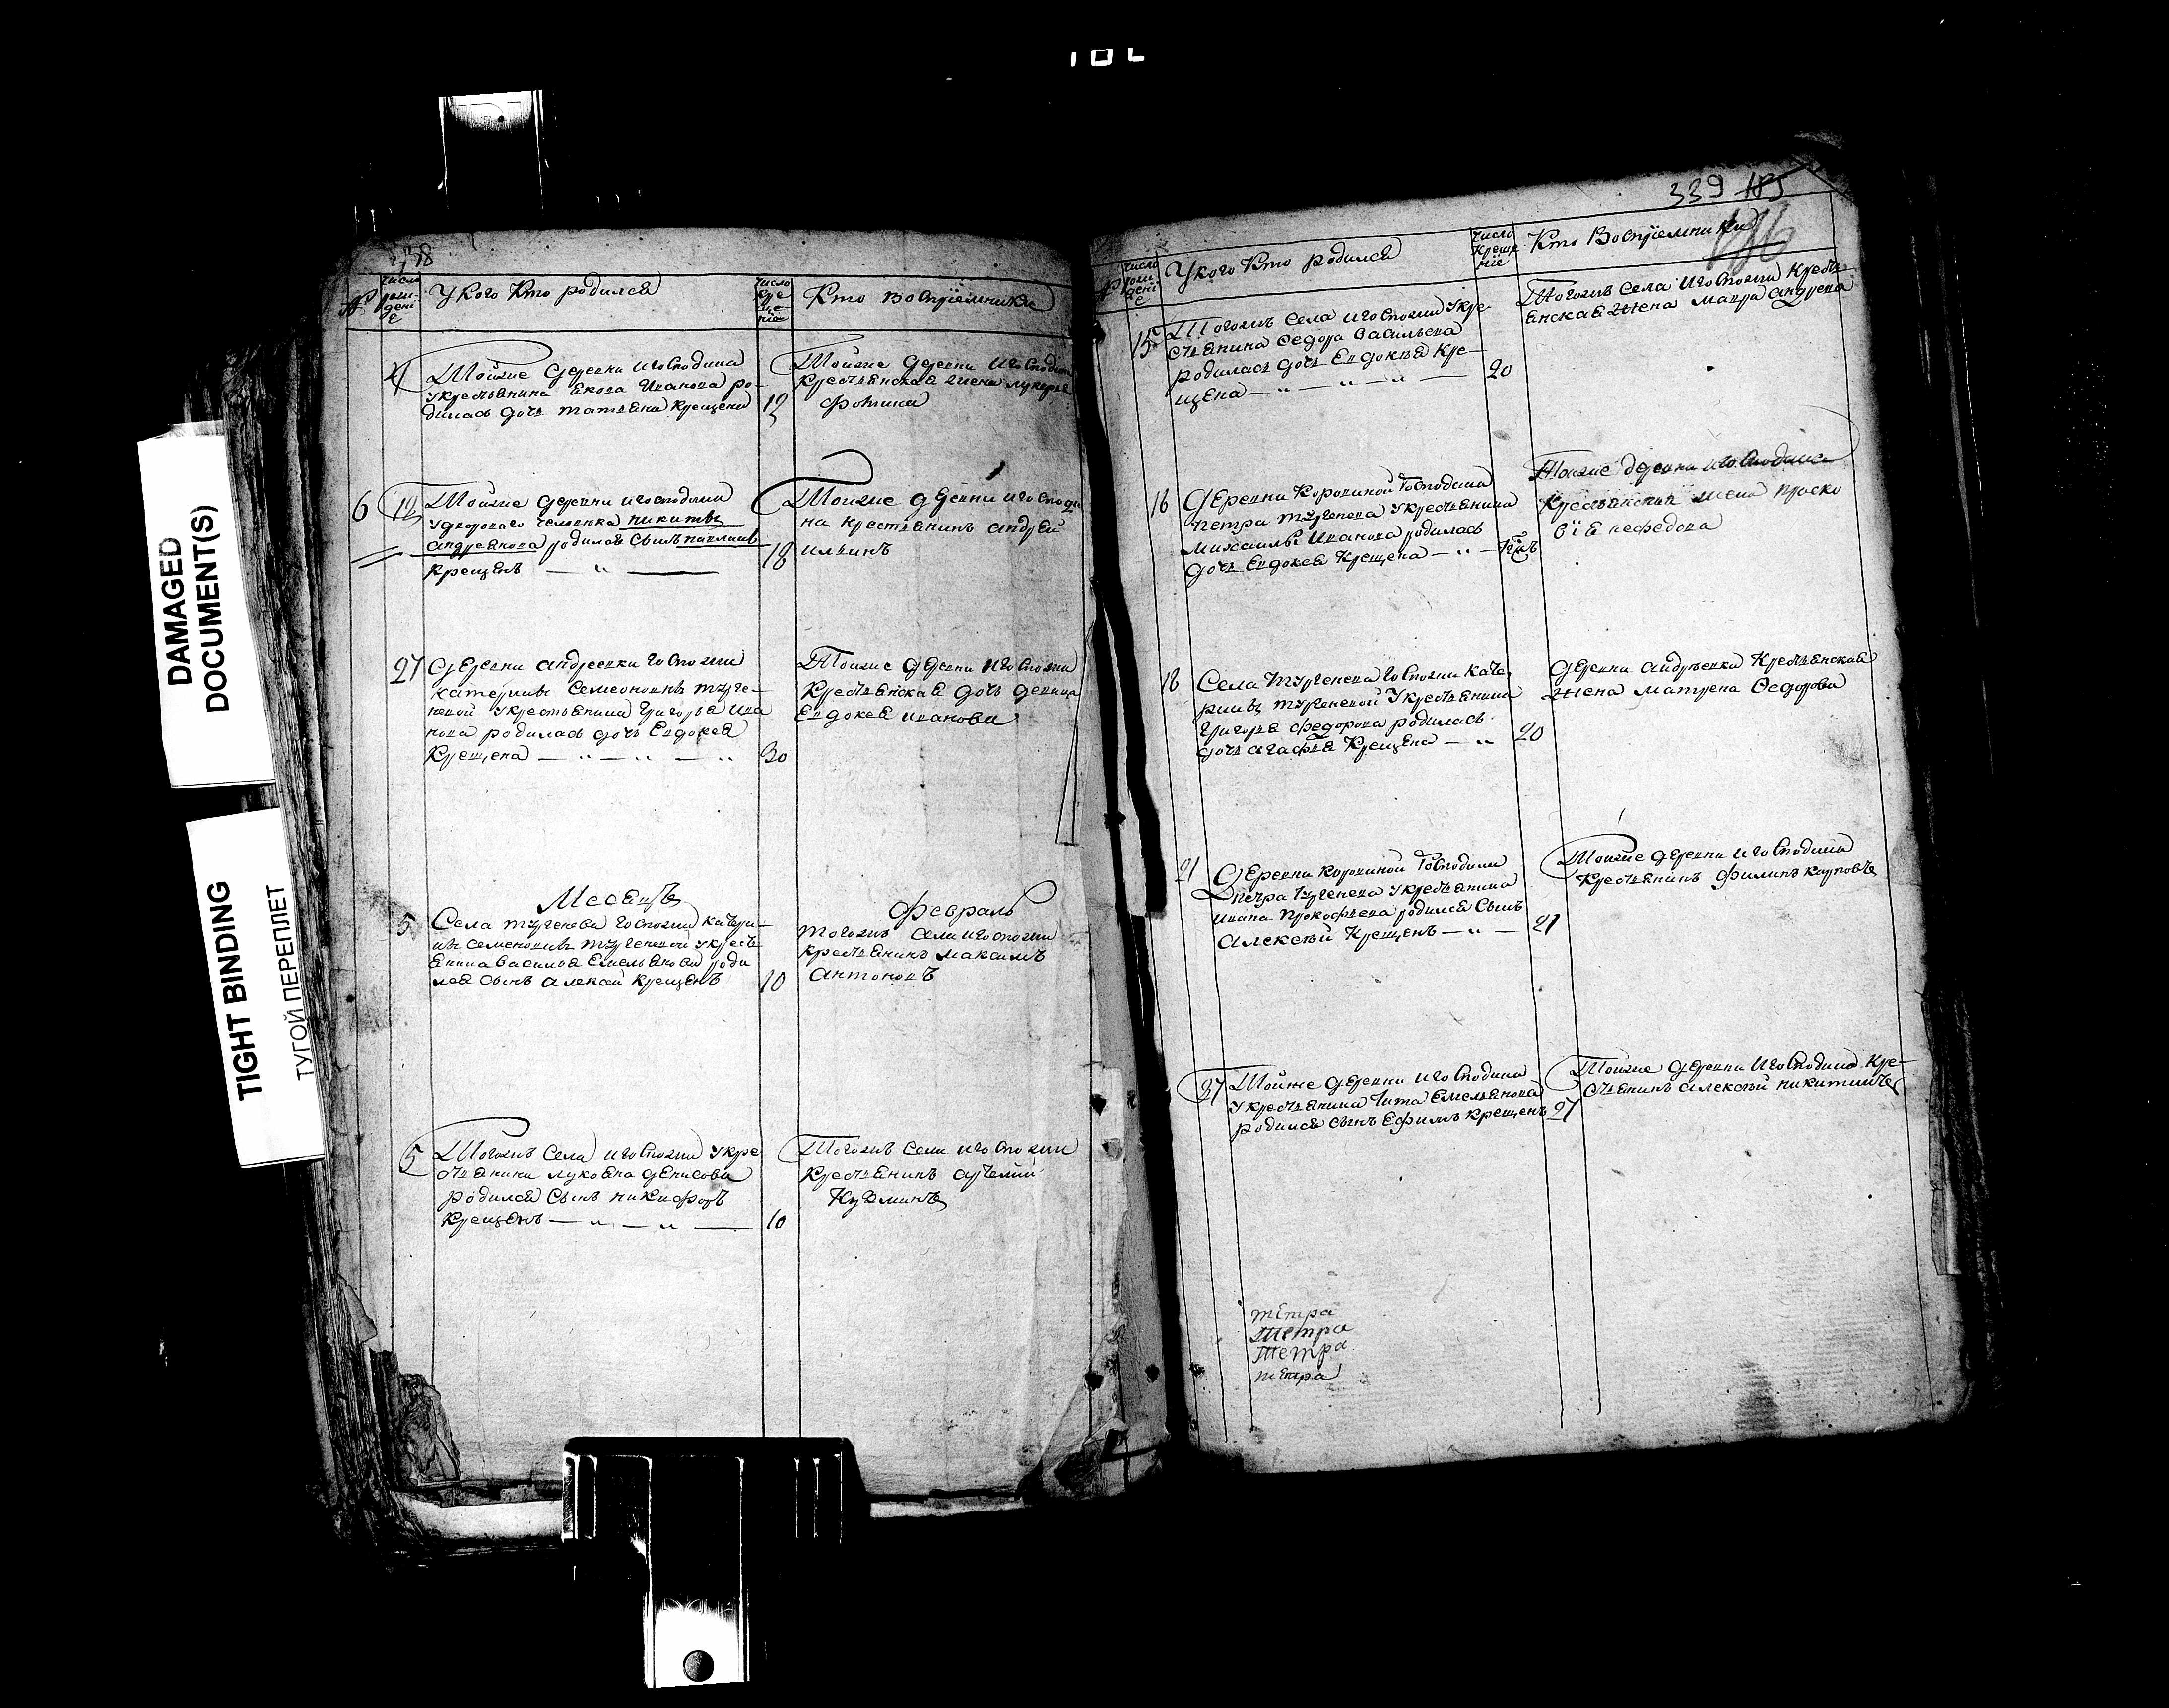 DAMAGED
DOCUMENT(S)
TIGHT BINDING
ТУГОЙ ПЕРЕПЛЕТ
число
рож
дені
е
У кого Кто родился
число
кре
ще
ніе
Кто воспріемники
4
Тойже деревни игосподина
укрестьянина Екова Иванова ро-
дилась дочь татьяна крещена
12
Тойже деревни игосподина
крестьянская жена лукерья
фотина
6
12
Тойже деревни игосподина
удвороваго человека никиты
андреянова родился сынъ павлинъ
крещенъ
18
Тойже деревни игосподи
на крестьянинъ андрей
ильинъ
27
деревни андреевки госпожи
катерины Семеоновны турге-
невой укрестьянина григорья ива
нова родилась дочь Евдокея
крещена
30
Тойже деревни игоспожи
крестьянская дочь девица
Евдокея иванова
Месецъ
Февраль
5
Села тургенева госпожи катери-
ны семеновны тургеневой укресть
янина василья Емельянова роди
лся сынъ алексей крещенъ
10
тогожъ села игоспожи
крестьянинъ максимъ
антоновъ
5
Тогожъ села игоспожи укре
стьянина лукояна денисова
родился сынъ никифоръ
крещенъ
10
Тогожъ села игоспожи
крестьянинъ
Кузминъ
339 185
число
рож
дені
е
У кого Кто родился
число
креще
ніе
Кто Воспріемники
15
Тогожъ села игоспожи укре-
стьянина Федора Васильева
родилась дочь Евдокея кре-
щена
20
Тогожъ села игоспожи кресть
янская жена мавра андреева
16
деревни Коровиной господина
петра тургенева укрестьянина
михаилы иванова родилась
дочь Евдокея крещена
Тойже деревни игосподина
крестьянская жена праско
вія нефедова
18
Села тургенева госпожи кате
рины тургеневой укрестьянина
григорья федорова родилась
дочь агафья крещена
20
деревни андреевки крестьянская
жена матрена Федорова
21
деревни коровиной господина
петра тургенева укрестьянина
ивана прокофьева родился сынъ
алексей крещенъ
21
Тойже деревни игосподина
крестьянинъ филипъ карповъ
27
Тойже деревни игосподина
укрестьянина тита Емельянова
родился сынъ Ефимъ крещенъ
27
Тойже деревни игосподина кре-
стьянинъ алексей никитинъ
тетра
Тетра
Тетра
тетра